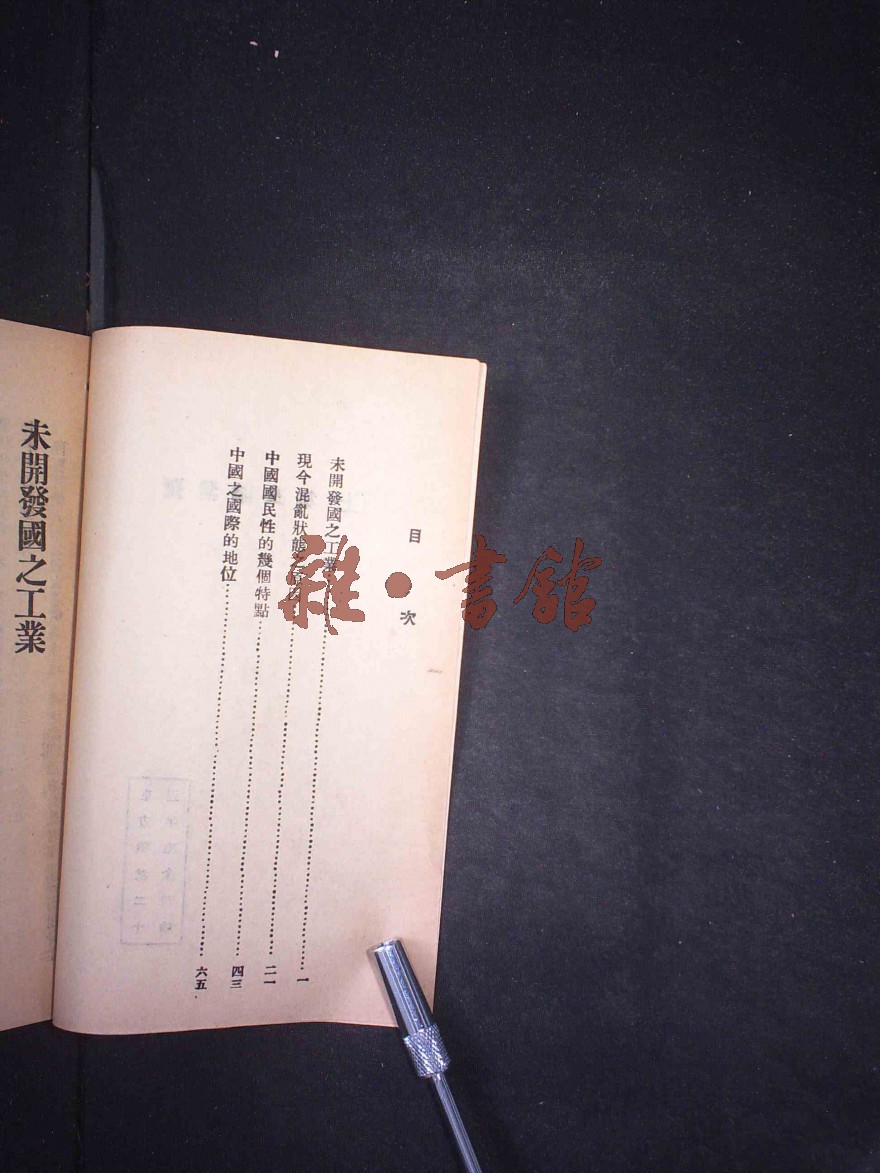 目次
未開發國之工業……一
現今混亂狀態……二一
中國國民性的幾個特點……四三
中國之國際的地位……六五
未開發國之工業
雜·書館